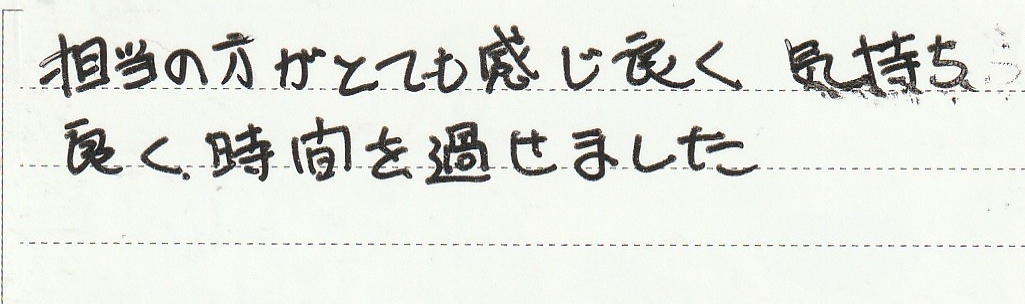 担当の方がとても感じ良く 気持ち
良く、時間を過せました